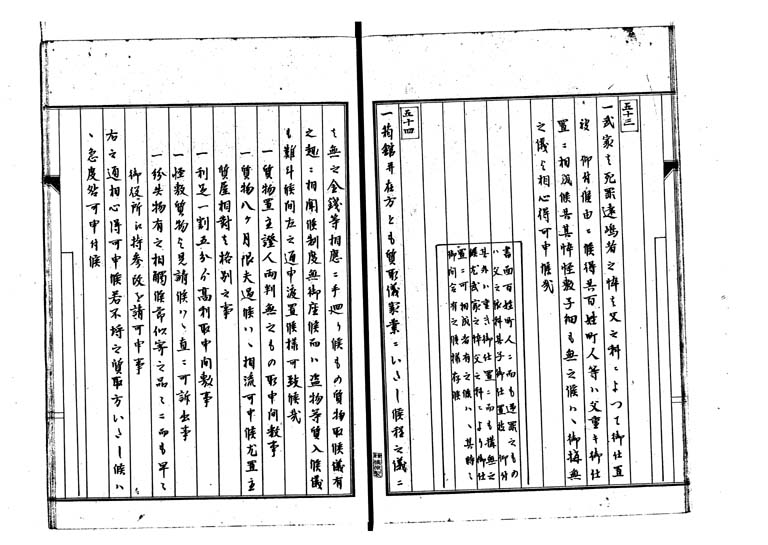 五十三
一武家之死罪遠嶋者之悴ハ父之科ニよつて御仕置
被 仰付候由ニ候得共百姓町人等ハ父重キ御仕
置ニ相成候共其悴怪敷子細も無之候ハヽ御構無
之儀と相心得可申候哉
書面百姓町人ニ而も逆罪之もの
ハ父之依科其子御仕置被 仰付
其外ハ重き御仕置ニ而も構無之
尤武家之悴父之科ニより御仕
置ニ可相成者有之候ハヽ其時々
御問合有之候様存候
五十四
一箱館并在方とも質取儀家業ニいたし候程之儀ニ
も無之金銭等相應ニ手廻り候もの質物取候儀有
之趣ニ相聞候制度無御座候而ハ盗物等質入候儀
も難斗候間左之通申渡置候様可致候哉
一質物置主證人両判無之もの取申間敷事
一質物八ケ月限夫過候ハヽ相流可申候尤置主
質屋相對之格別之事
一利足一割五分ゟ高利取申間敷事
一怪敷質物と見請候ハヽ直ニ可訴出事
一紛失物有之相觸候節似寄之品々ニ而も早々
御役所江持参改を請可申事
右之通相心得可申候若不埒之質取方いたし候ハ
ヽ急度咎可申付候